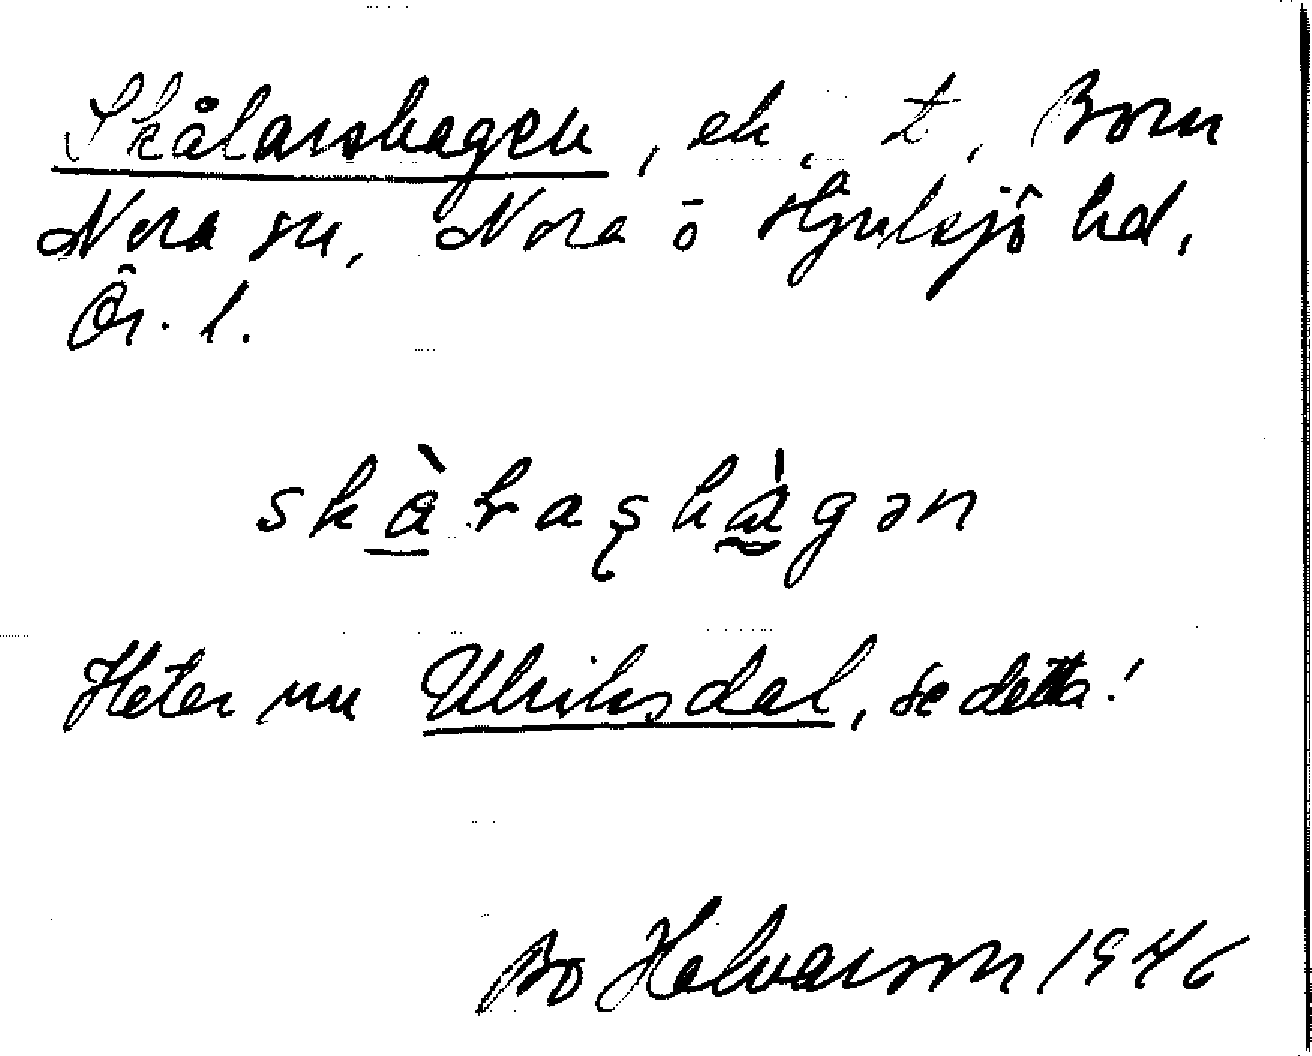 Skålarshagen, ek, t, Born
Nora sn, Nora o Hjulsjö hd,
Ör. l.
skàlaşhàgən
Heter nu Ulriksdal, se detta!
Bo Helvarsson 1946